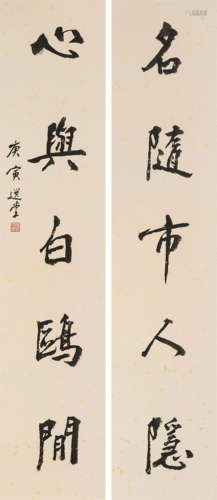 名隨市人隱
心與白鷗閒
庚寅選堂